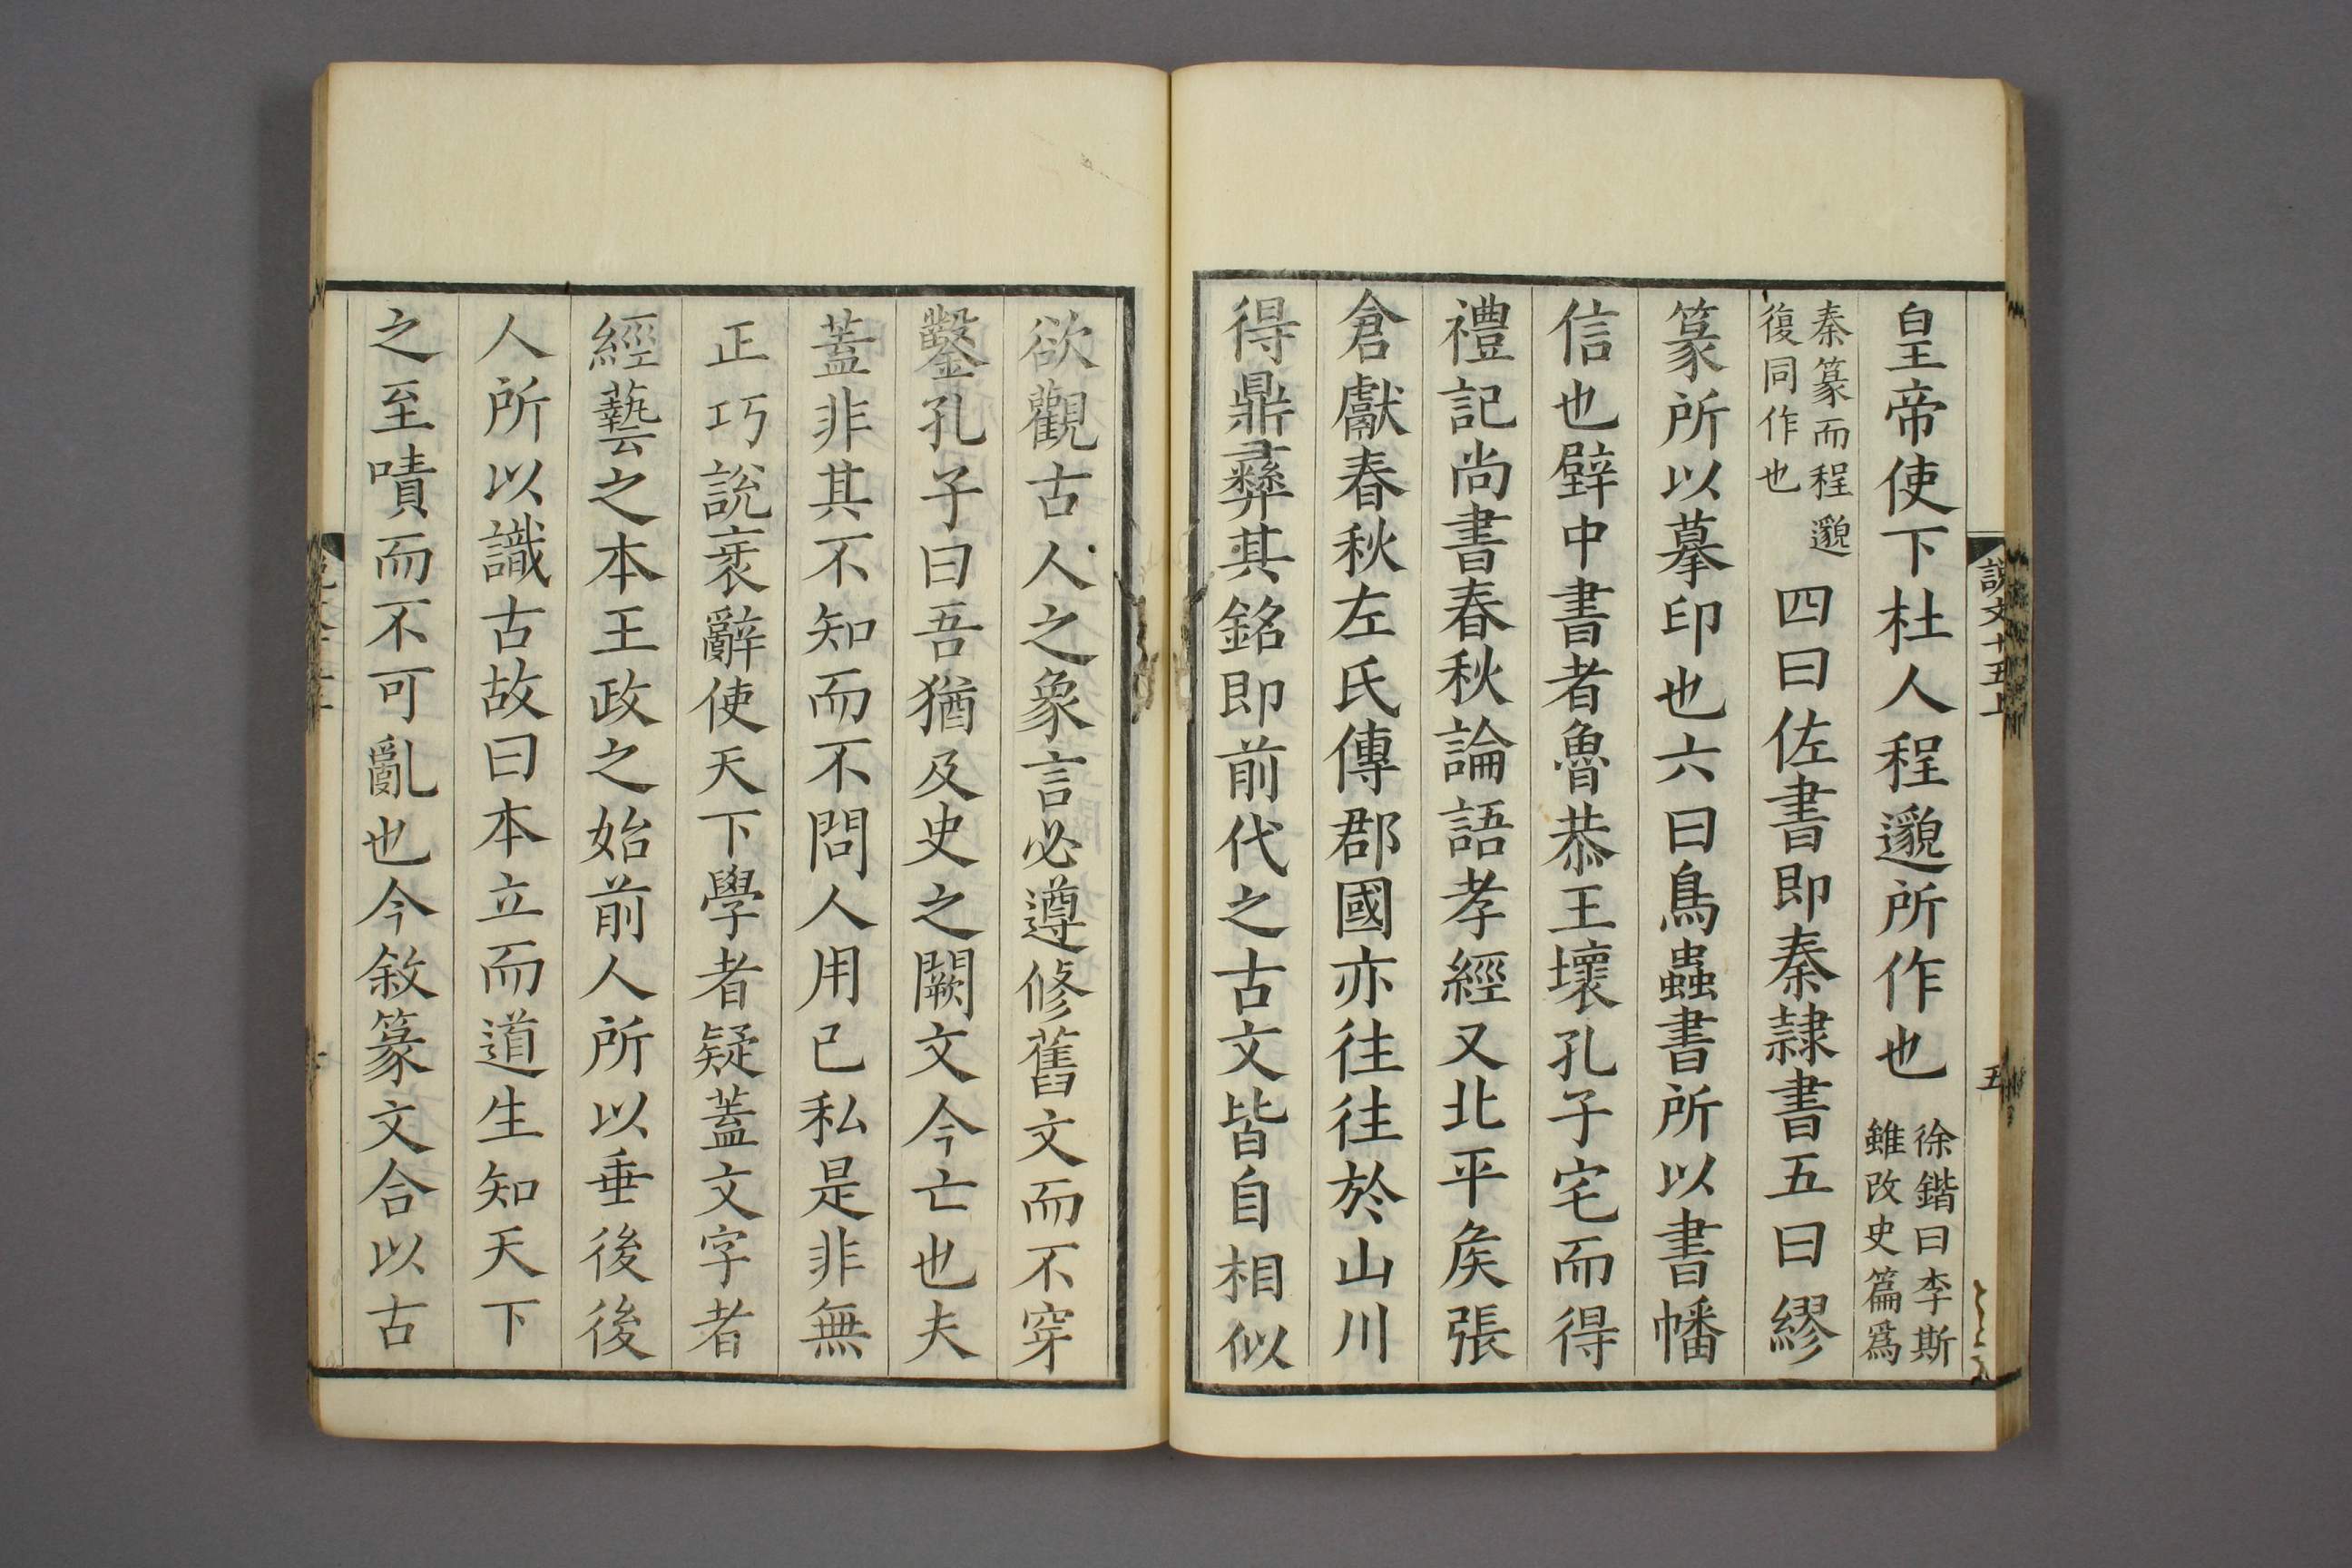 說文十五上
五
皇帝使下杜人程邈所作也
徐鍇曰李斯
雖改史篇爲
秦篆而程邈
復同作也
四曰佐書即秦隸書五曰繆
篆所以摹印也六曰鳥蟲書所以書幡
信也壁中書者魯恭王壞孔子宅而得
禮記尚書春秋論語孝經又北平矦張
倉獻春秋左氏傳郡國亦往往於山川
得鼎彝其銘即前代之古文皆自相似
欲觀古人之象言必遵修舊文而不穿
鑿孔子曰吾猶及史之闕文今亡也夫
蓋非其不知而不問人用己私是非無
正巧說衺辭使天下學者疑蓋文字者
經藝之本王政之始前人所以垂後後
人所以識古故曰本立而道生知天下
之至嘖而不可亂也今敘篆文合以古